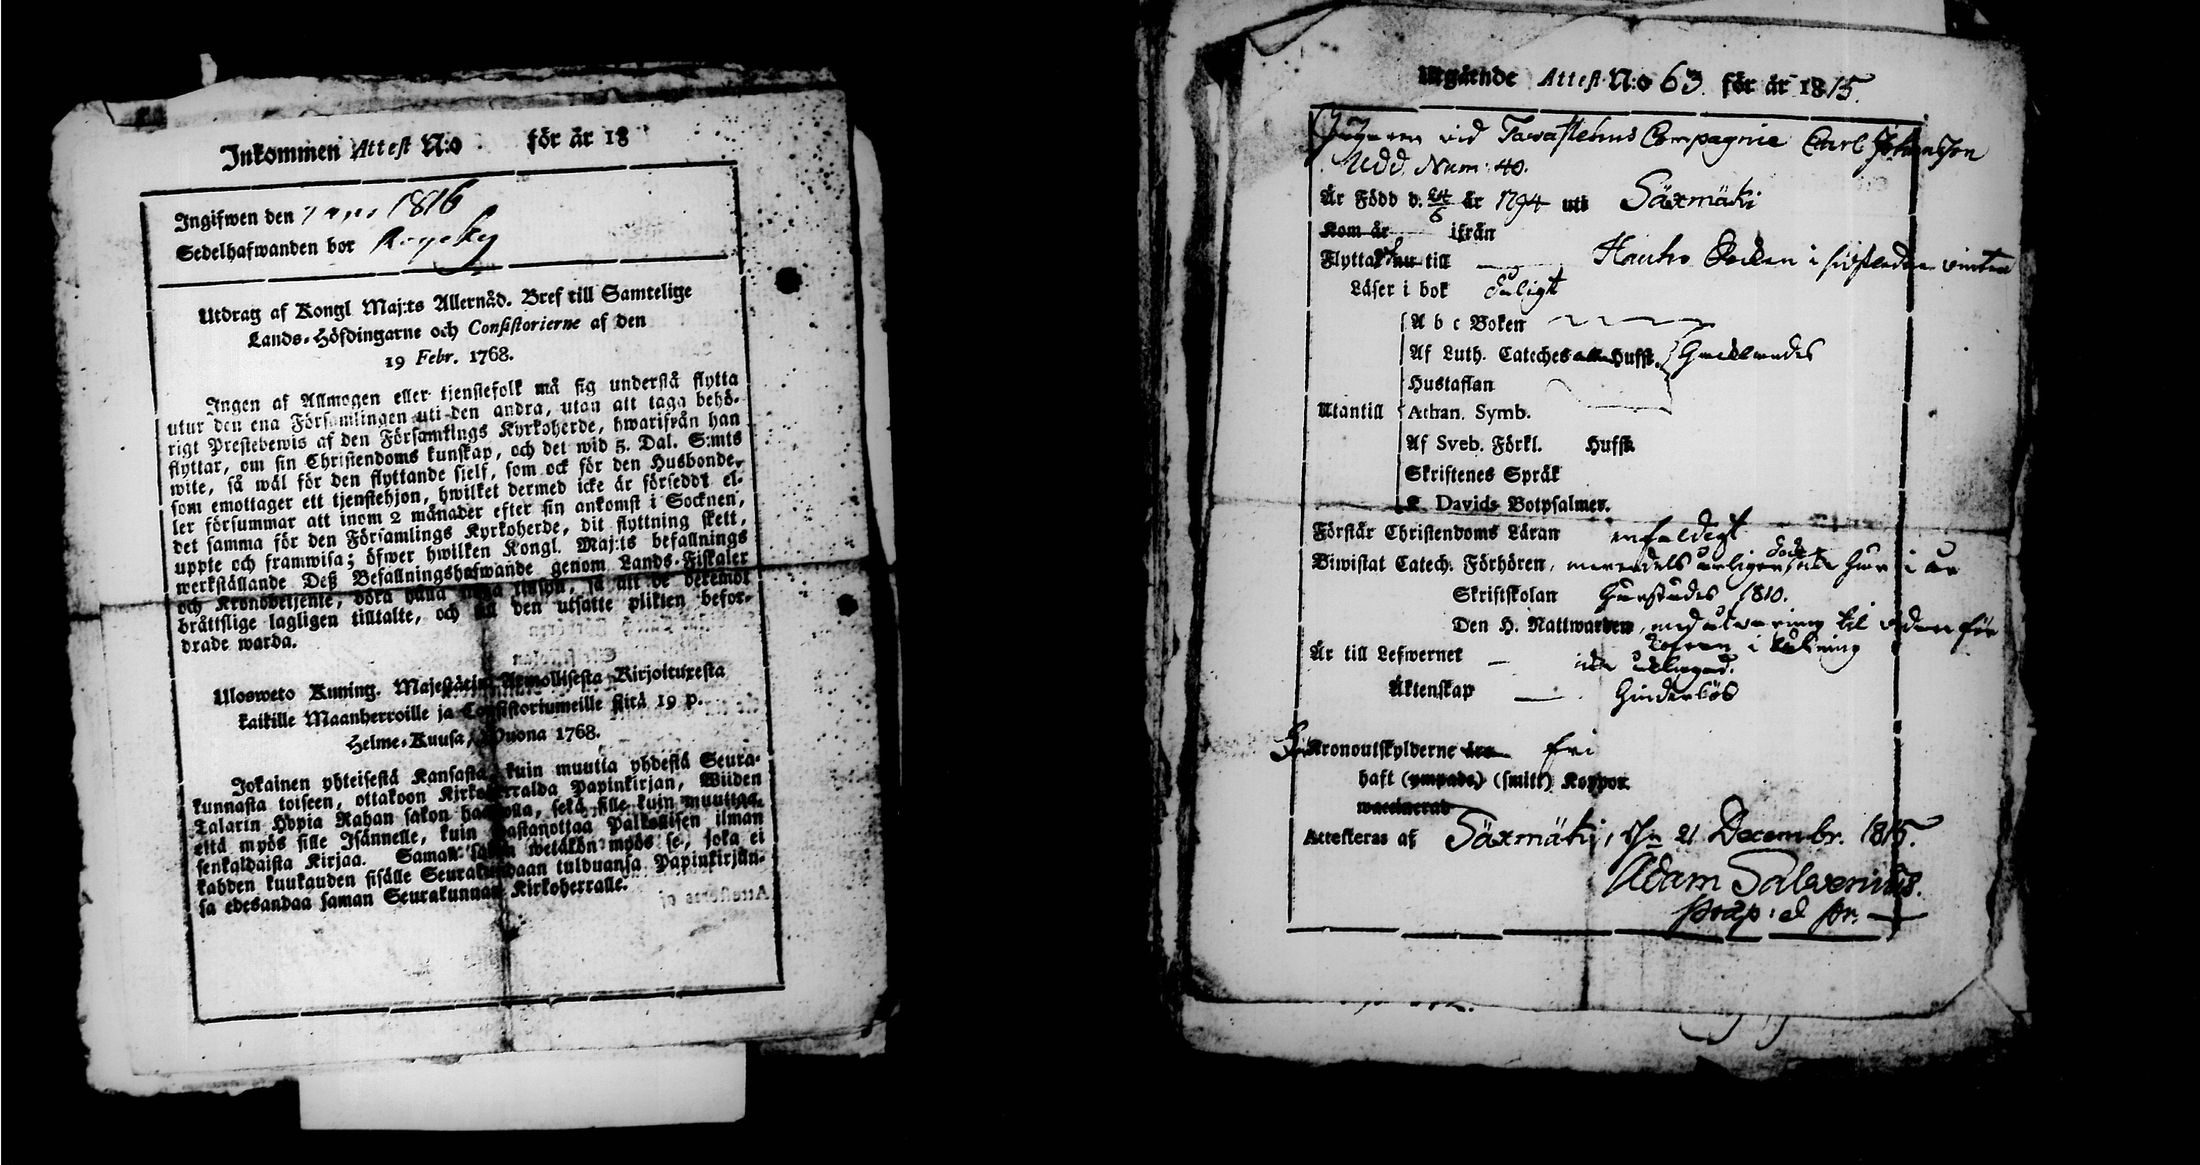 Inkommen Attest N:o för år 18
Ingifwen den 1816
Sedelhafwanden bor
Utdrag af Kongl Maj:ts Allernåd. Bref till Samtelige
Lands-Höfdingarne och Consistorierne af den
19 Febr. 1768.
Ingen af Allmogen eller tjenstefolk må sig understå flytta
utur den ena Församlingen uti den andra, utan att taga behö-
rigt Prestebewis af den Församlings Kyrkoherde, hwarifrån han
flyttar, om sin Christendoms kunskap, och det wid 5. Dal. S:mts
wite, så wäl för den flyttande sielf, som ock för den Husbonde,
som emottager ett tjenstehjon, hwilket dermed icke är försedt el-
ler försummar att inom 2 månader efter sin ankomst i Socknen,
det samma för den Församlings Kyrkoherde, dit flyttning skett,
uppte och framwisa; öfwer hwilken Kongl. Maj:ts befallnings
werkställande Deß Befallningshafwande genom Lands-Fiskaler
och Kronobetjente, böra hålla noga tilsyn, så att de deremot
bråttslige lagligen tilltalte, och till den utsatte plikten befor-
drade warda.
Ulosweto Kuning. Majestätin Armollisesta Kirjoituxesta
kaikille Maanherroille ja Consistoriumeille siitä 19 p.
Helme-Kuusa, Wuona 1768.
Jokainen yhteisestä Kansasta, kuin muutta yhdestä Seura-
kunnasta toiseen, ottakoon Kirkoherralda Papinkirjan, Wiiden
Talarin Hopia Rahan sakon haastolla, sekä sille kuin muuttaa,
että myös sille Isännelle, kuin wastanottaa Palkollisen ilman
senkaldaista Kirjaa. Saman sakon wetäkön myös se, joka ei
kahden kuukauden sisälle Seurakundaan tulduansa Papinkirjan-
sa edesandaa saman Seurakunnan Kirkoherralle.
Utgående Attest N:o 63. för år 1815.
vid Tavastehus Compagnie Carl Johansson
Udd. Num: 40.
Är Född d. 24/6 år 1794 uti Säxmäki
Kom år ifrån
Flyttade nu till Hauho Socken i sidstledne vinter
Läser i bok
A b c Boken
Af Luth. Cateches alla Hufst.
Hustaflan
Utantill Athan. Symb.
Af Sveb. Förkl. Hufst.
Skriftenes Språk
K. Davids Botpsalmer.
Förstår Christendoms Läran enfaldigt
Biwistat Catech. Förhören,
Skriftskolan 1810.
Den H. Nattwarden,
Är till Lefwernet
Äktenskap hinderlös
Kronoutskylderne är fri
haft (ympade) (smitt) Koppor
waccinerad
Attesteras af Säxmäki, d. 21 Decembr. 1815.
Adam Salvenius.